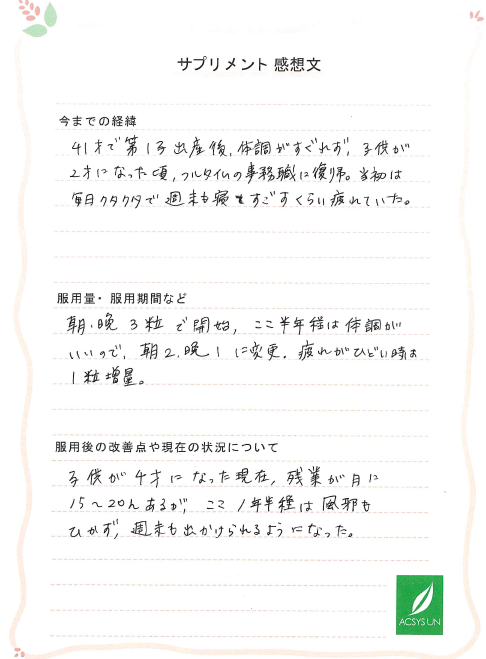 サプリメント 感想文
今までの経緯
41才で第1子出産後、体調がすぐれず、子供が
2才になった頃、フルタイムの事務職に復帰。当初は
毎日クタクタで週末も寝てすごすくらい疲れていた。
服用量・服用期間など
朝・晩 3粒で開始、ここ半年程は体調が
いいので、朝2、晩1に変更。疲れがひどい時は
1粒増量。
服用後の改善点や現在の状況について
子供が4才になった現在、残業が月に
15〜20hあるが、ここ1年半程は風邪も
ひかず、週末も出かけられるようになった。
ACSYS UN